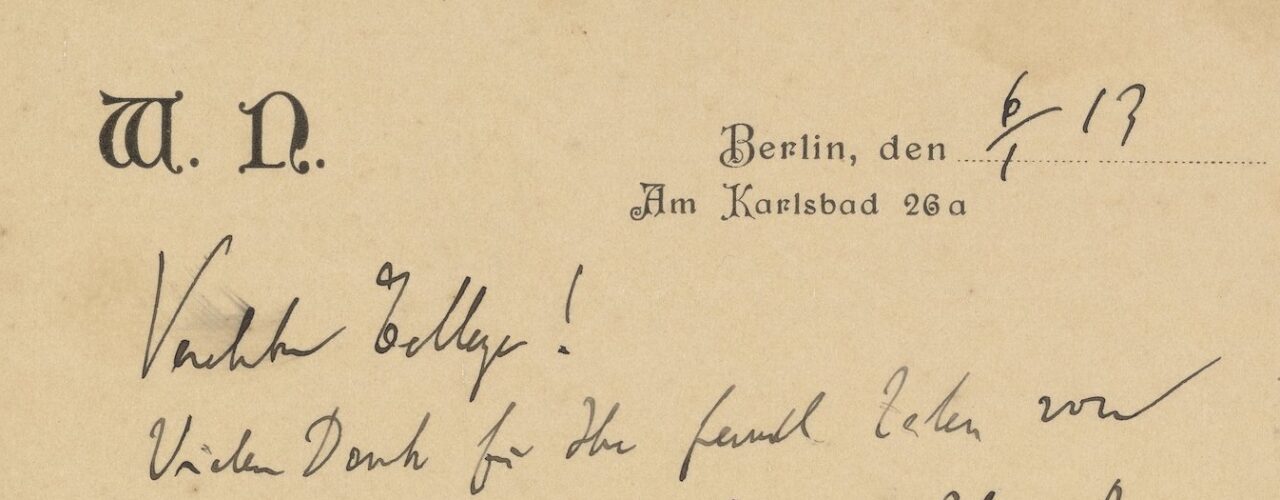 W. N.
Berlin, den 6/1 13
Am Karlsbad 26a
Verehrter College!
Vielen Dank für Ihre freundl Zeilen vom